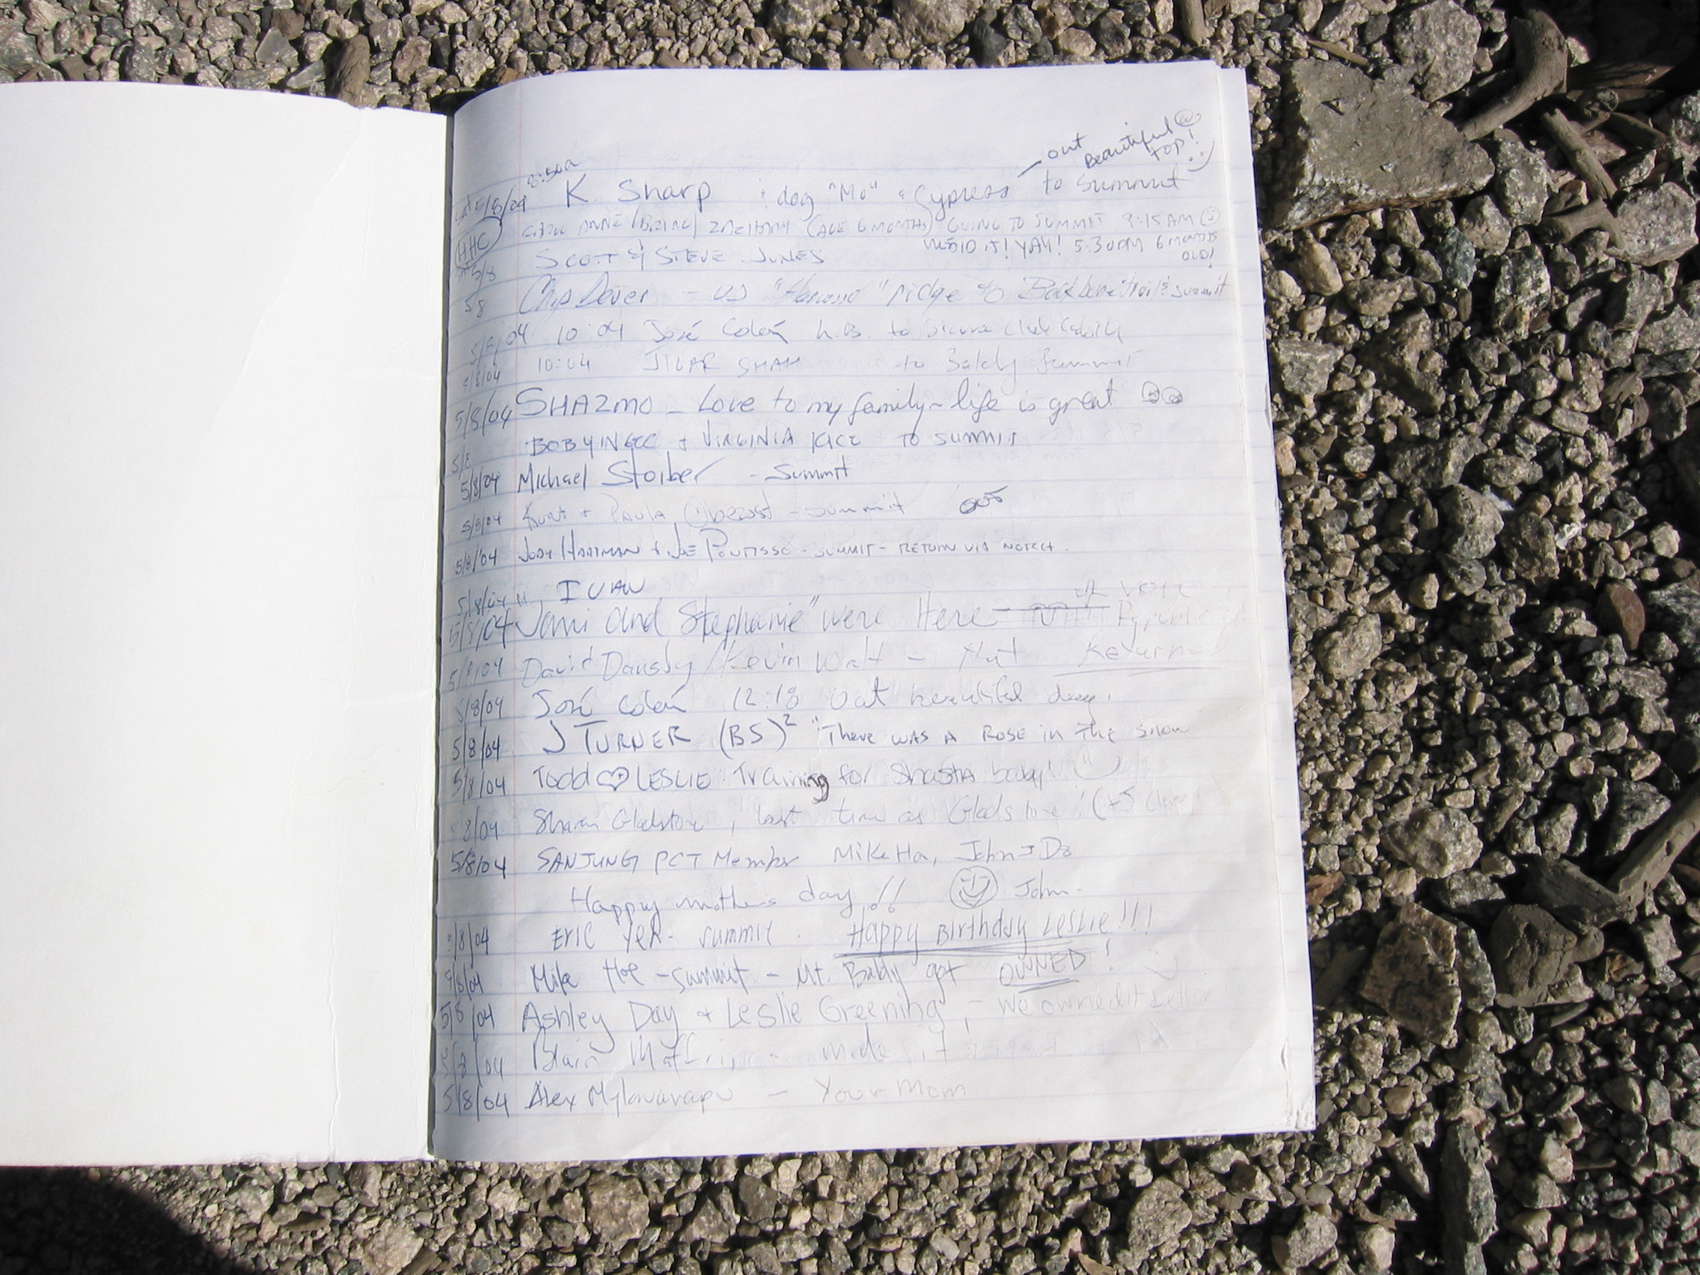 out Beautiful
top!
8:50a
5/8/04 K. Sharp & dog "Mo" & Cypress to summit
HHC ANNE / ZACHARY (AGE 6 MONTHS) GOING TO SUMMIT 9:15 AM
WE DID IT! YAY! 5:30PM 6 MONTHS OLD!
5/8 SCOTT & STEVE JONES
5/8 ridge to Backbone trail & summit
5/8/04 10:04 José Colón to Sierra Club
5/8/04 10:04 SHAH to Baldy Summit
5/8/04 SHAZMO - Love to my family - life is great
5/8 + VIRGINIA TO SUMMIT
5/8/04 Michael Stoiber - Summit
5/8/04 Kurt + Paula - summit
5/8/04 + JOE - SUMMIT - RETURN VIA NOTCH.
5/8/04 IVAN
5/8/04 Jami and Stephanie" were Here
5/8/04 David Dansby / Kevin - Return
5/8/04 José Colón 12:18 out beautiful day.
5/8/04 J TURNER (BS)² "There was a Rose in the snow
5/8/04 Todd ♡ LESLIE Training for Shasta baby!
8/04 Sharon Gladstone, last time as Gladstone!
5/8/04 SANJUNG PCT Member Mike Ha, John J Do
Happy mothers day!! John
5/8/04 ERIC YEH - summit. Happy Birthday Leslie!!!
5/8/04 Mike Hoe - summit - Mt. Baldy got OWNED!
5/8/04 Ashley Day & Leslie Greening - We owned it better
5/8/04 Blair made it
5/8/04 Alex Mylavarapu - Your Mom